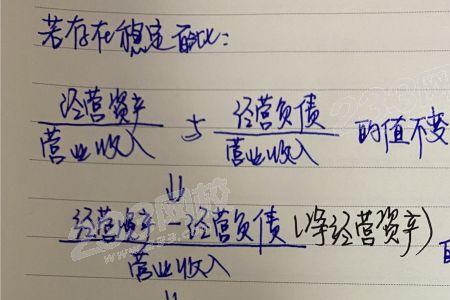 若存在稳定百比：
经营资产 与 经营负债 的值不变
营业收入 营业收入
⇓
经营资产-经营负债(净经营资产)
营业收入